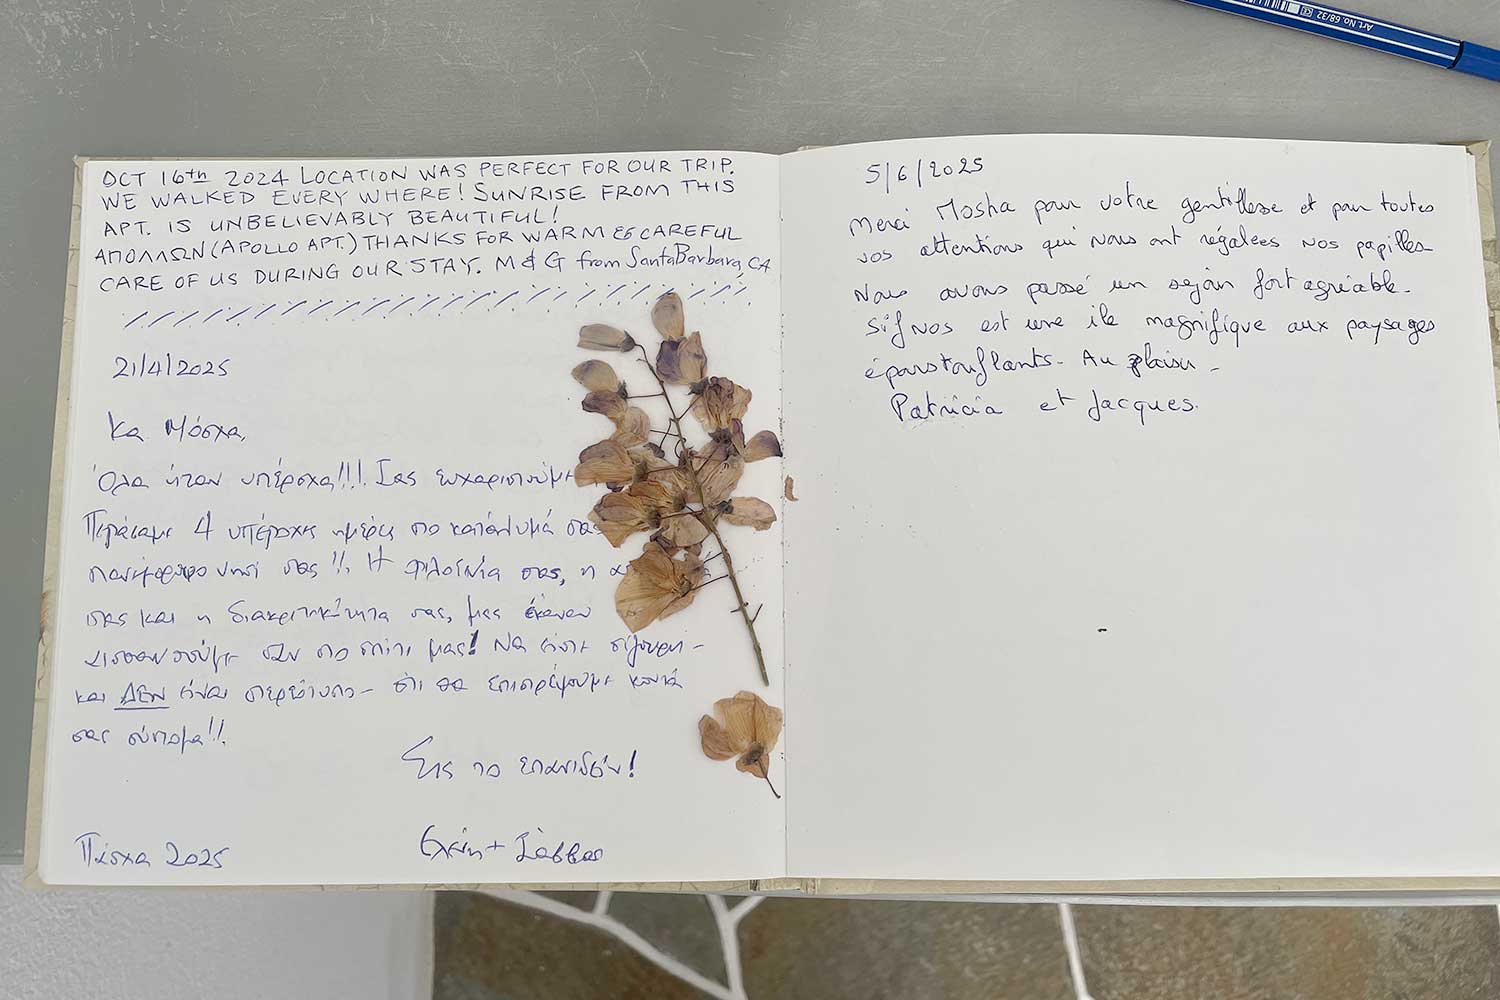 Art. No. 68/32
OCT 16th 2024 LOCATION WAS PERFECT FOR OUR TRIP.
WE WALKED EVERY WHERE! SUNRISE FROM THIS
APT. IS UNBELIEVABLY BEAUTIFUL!
ΑΠΟΛΛΩΝ (APOLLO APT.) THANKS FOR WARM & CAREFUL
CARE OF US DURING OUR STAY. M & G from Santa Barbara, CA
21/4/2025
Κα Μόσχα,
Όλα ήταν υπέροχα!!! Σας ευχαριστούμε
Περάσαμε 4 υπέροχες ημέρες στο κατάλυμά σας
πανέμορφο νησί σας!!. Η φιλοξενία σας, η
σας και η διακριτικότητα σας, μας έκαναν
αισθανθούμε σαν στο σπίτι μας! Να είστε σίγουρη -
και ΔΕΝ είναι στερεότυπο - ότι θα επιστρέψουμε κοντά
σας σύντομα!!.
Εις το επανιδείν!
Ελένη + Σάββας
Πάσχα 2025
5/6/2025
Merci Mosha pour votre gentillesse et pour toutes
vos attentions qui nous ont régalées nos papilles
Nous avons passé un sejour fort agréable.
Sifnos est une ile magnifique aux paysages
époustouflants. Au plaisir.
Patricia et Jacques.